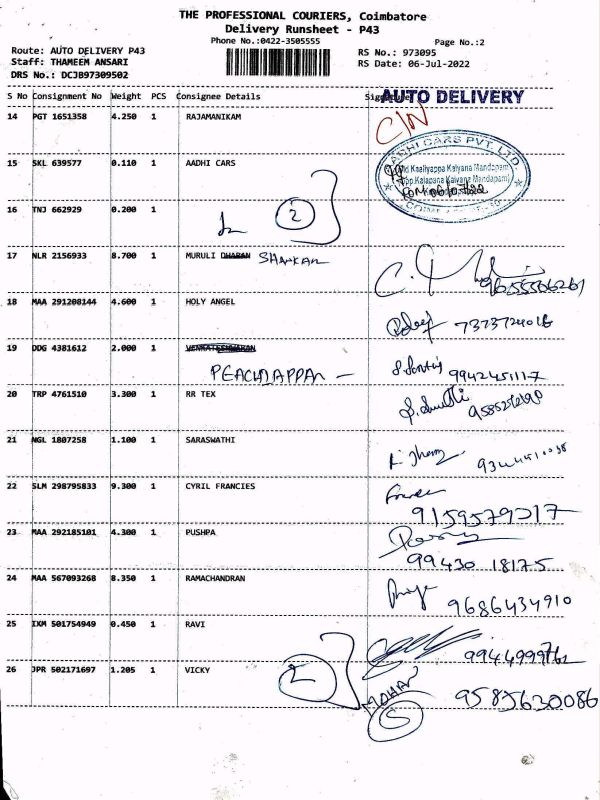 THE PROFESSIONAL COURIERS, Coimbatore
Delivery Runsheet - P43
Phone No.:0422-3505555
Page No.:2
Route: AUTO DELIVERY P43
RS No.: 973095
Staff: THAMEEM ANSARI
RS Date: 06-Jul-2022
DRS No.: DCJB97309502
S No Consignment No Weight PCS Consignee Details
AUTO DELIVERY
14 PGT 1651358 4.250 1 RAJAMANIKAM
C/N
AADHI CARS PVT. LTD
15 SKL 639577 0.110 1 AADHI CARS
Kalyana Mandapam
16 TNJ 662929 0.200 1
2
17 NLR 2156933 8.700 1 MURULI DHARAN SHANKAR
18 MAA 291208144 4.600 1 HOLY ANGEL
7373724016
19 DDG 4381612 2.000 1
PEACHIAPPAN -
9942451117
20 TRP 4761510 3.300 1 RR TEX
21 NGL 1807258 1.100 1 SARASWATHI
22 SLM 298795833 9.300 1 CYRIL FRANCIES
9159579017
23 MAA 292185101 4.300 1 PUSHPA
99430 18175
24 MAA 567093268 8.350 1 RAMACHANDRAN
9686434910
25 IXM 501754949 0.450 1 RAVI
26 JPR 502171697 1.205 1 VICKY
2
9585630086
5